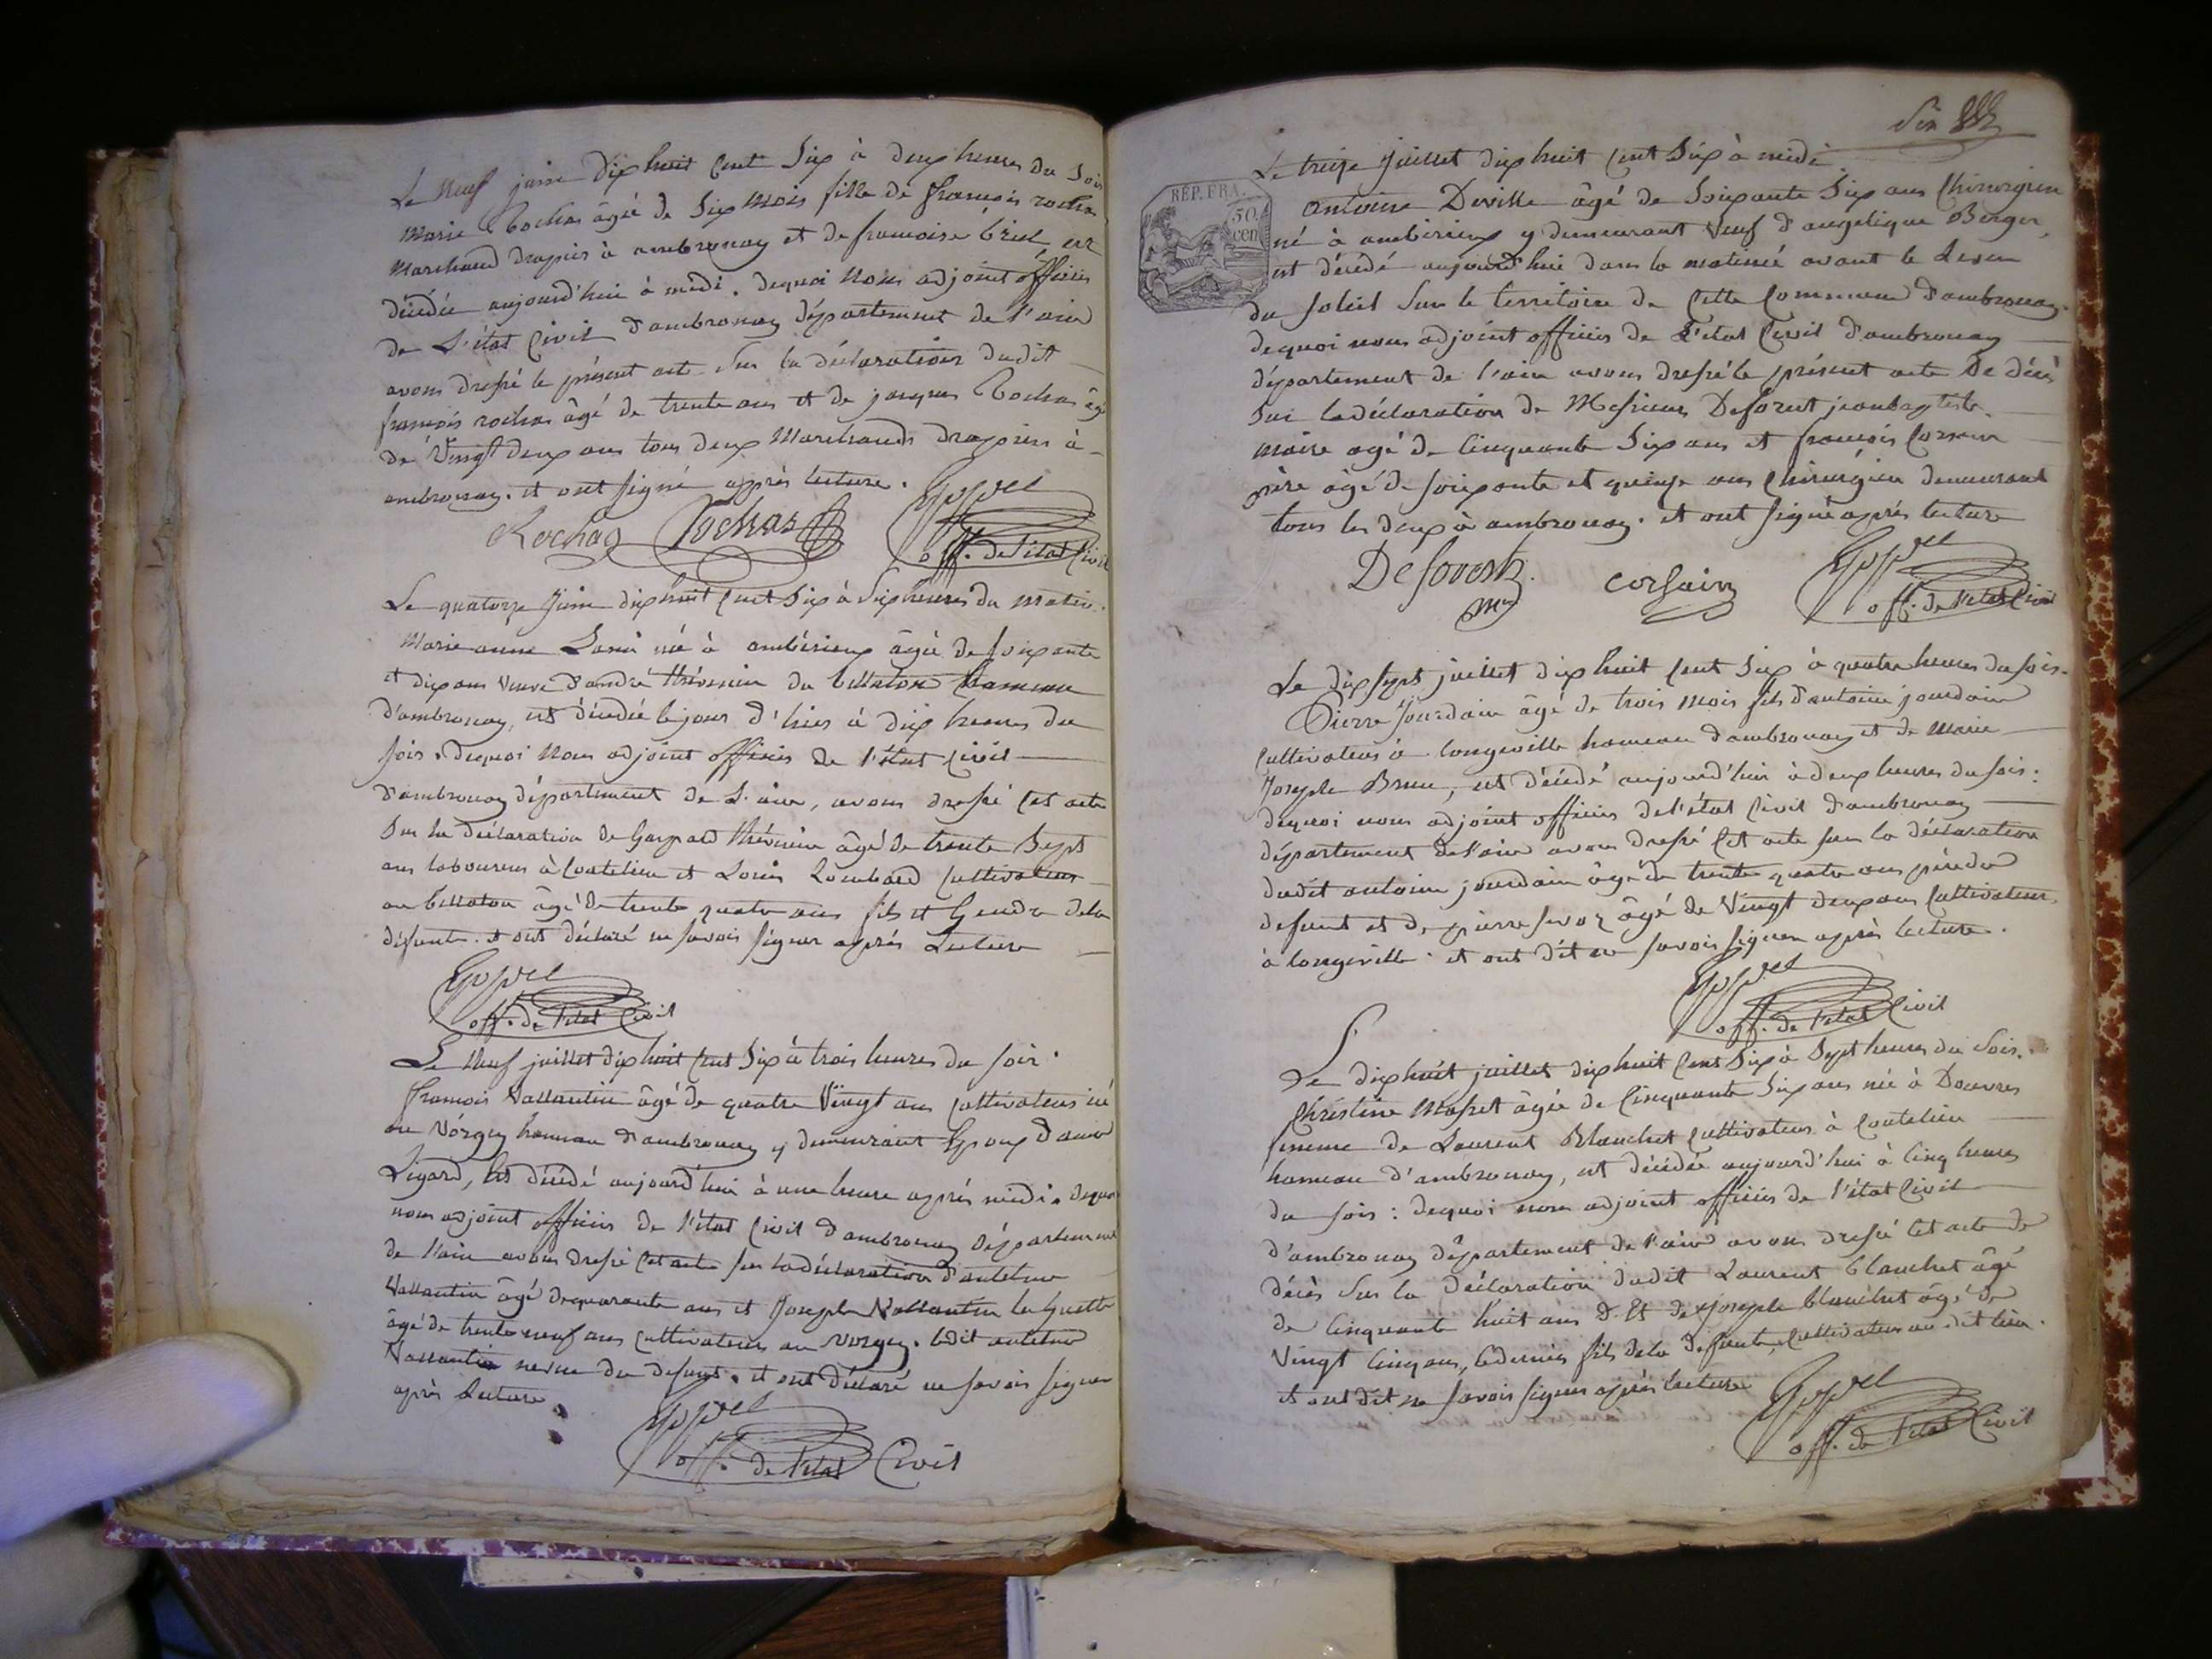 Le neuf juin dix huit cent Six à deux heures du Soir
Marie Rochas âgée de Six mois fille de françois rochas
Marchand drapier à ambronay et de francoise est
décédée aujourd'hui à midi. dequoi Nous adjoint officier
de L'état Civil d'ambronay département de l'ain
avons dressé le présent acte Sur la déclaration dudit
françois rochas âgé de trente ans et de jacques Rochas âgé
de Vingt deux ans tous deux Marchands drapiers à
ambronay. et ont signé après lecture.
Rochas Rochas
off. de l'état Civil
Le quatorze Juin dix huit Cent Six à Six heures du matin.
Marie anne née à ambérieux âgée de soixante
et dix ans veuve d'andré thévenin du hameau
d'ambronay, est décédée le jour d'hier à dix heures du
soir. dequoi Nous adjoint officier de l'état Civil
d'ambronay département de L'ain, avons dressé Cet acte
Sur la déclaration de Gaspard thévenin âgé de trente Sept
ans laboureur à Coutelieu et Louis Lombard Cultivateur
au âgé de trente quatre ans fils et Gendre de la
défunte. et ont déclaré ne savoir signer après Lecture
off. de l'état Civil
Le Neuf juillet dix huit Cent Six à trois heures du soir.
françois Vallantin âgé de quatre Vingt ans Cultivateur né
au Vorgey hameau d'ambronay y demeurant Epoux d'anne
Ligard, Est décédé aujourd'hui à une heure après midi. dequoi
nous adjoint officier de l'état Civil d'ambronay département
de l'ain avons dressé Cet acte sur la déclaration d'antelme
Vallantin âgé de quarante ans et Joseph Vallantin
âgé de trente neuf ans Cultivateurs au vorgey. ledit antelme
Vallantin neveu du defunt. et ont déclaré ne savoir signer
après Lecture
off. de l'état Civil
Six
Le treize Juillet dix huit Cent Six à midi
REP. FRA.
50 cen
antoine Deville âgé de Soixante Six ans Chirurgien
né à ambérieux y demeurant Veuf d'angélique Berger,
est décédé aujourd'hui dans la matinée avant le Lever
du soleil Sur le territoire de Cette Commune d'ambronay.
dequoi nous adjoint officier de L'état Civil d'ambronay
département de l'ain avons dressé le présent acte de décès
Sur la déclaration de Messieurs Deforest jean baptiste
maire agé de Cinquante Six ans et françois Corsain
père âgé de soixante et quinze ans Chirurgien demeurant
tous les deux à ambronay. et ont signé après lecture
Deforest corsain
mre
off. de l'état Civil
Le dix sept juillet dix huit Cent Six à quatre heures du soir.
Pierre Jourdain âgé de trois mois fils d'antoine jourdain
Cultivateur à longeville hameau d'ambronay et de Marie
Joseph Brun, est décédé aujourd'hui à deux heures du soir:
dequoi nous adjoint officier de l'état Civil d'ambronay
département de l'ain avons dressé Cet acte sur la déclaration
dudit antoine jourdain âgé de trente quatre ans père du
defunt et de pierre âgé de Vingt deux ans Cultivateurs
à longeville. et ont dit ne savoir signer après lecture.
off. de l'état Civil
Le dix huit juillet dix huit Cent Six à Sept heures du Soir.
Christine Masset âgée de Cinquante Six ans née à Douvres
femme de Laurent Blanchet Cultivateur à Coutelieu
hameau d'ambronay, est décédée aujourd'hui à Cinq heures
du soir: dequoi nous adjoint officier de l'état Civil
d'ambronay département de l'ain avons dressé Cet acte de
décès Sur la déclaration dudit Laurent blanchet âgé
de Cinquante huit ans Et de joseph blanchet âgé de
Vingt Cinq ans, le dernier fils de la défunte, Cultivateurs au dit lieu.
et ont dit ne savoir signer après lecture
off. de l'état Civil